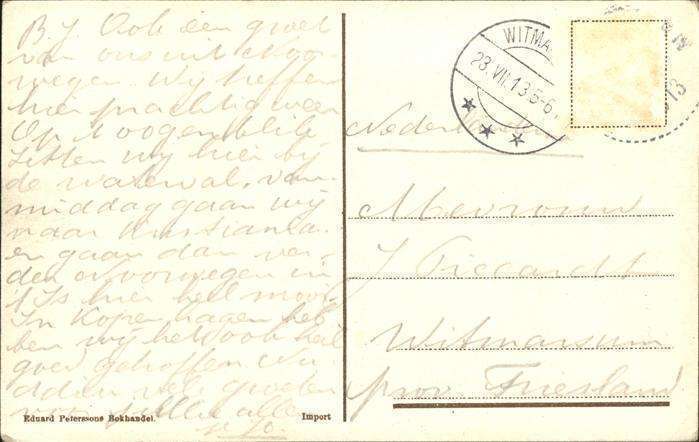 B. J. Ook een groet
van ons uit Noor-
wegen. Wij treffen
hier prachtig weer
Op 't oogenblik
zitten wij hier bij
de waterval, van-
middag gaan wij
naar Kristiania
en gaan dan ver-
der Noorwegen in
't Is hier heel mooi.
In Kopenhagen heb-
ben wij het ook heel
goed getroffen. Nu
groeten
allen
Eduard Peterssons Bokhandel.
Import
WITMA
28.VII.13.5-6.
13
Nederland
Mevrouw
J
Witmarsum
prov. Friesland